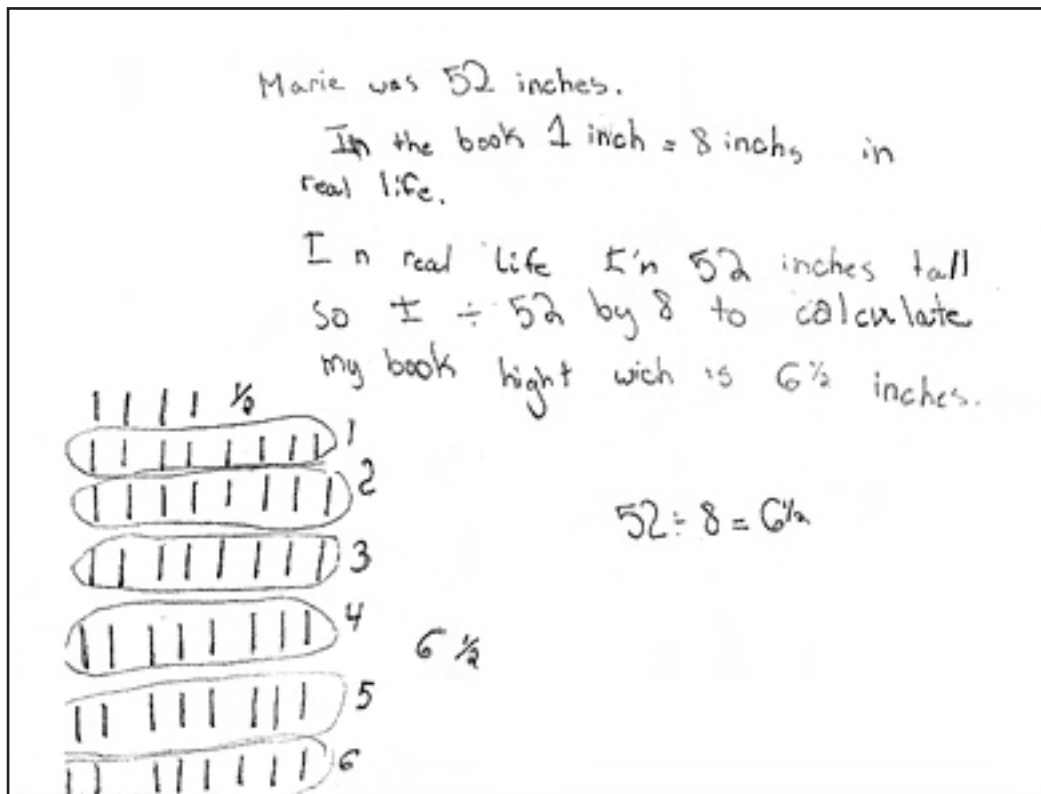 Marie was 52 inches.
In the book 1 inch = 8 inchs in
real life.
In real life I'n 52 inches tall
so I ÷ 52 by 8 to calculate
my book hight wich is 6 ½ inches.
½
1
2
3
4
5
6
6 ½
52 ÷ 8 = 6½